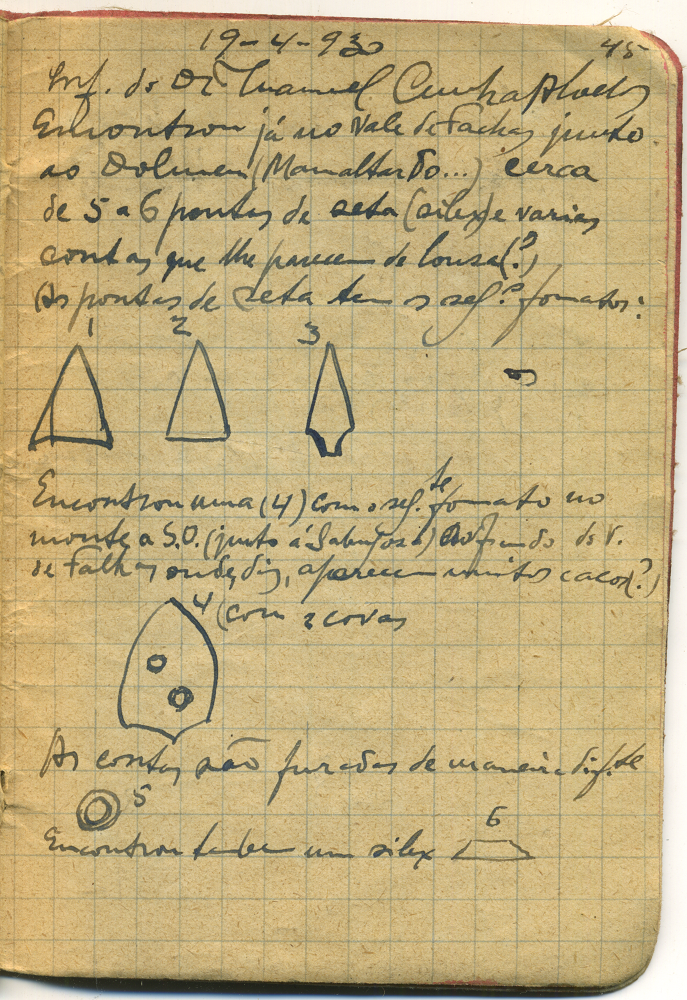 19-4-930 45
Inf. do Dr. Manuel Cunha
Encontrou já no Vale de Fachas junto
ao Dolmen (Mamaltar do...) cerca
de 5 a 6 pontas de seta (silex) e varias
contas que lhe parecem de lousa (?)
As pontas de seta tem os seg.es formatos:
1 2 3
Encontrou uma (4) com o seg.te formato no
monte a S.O. (junto á Sabugosa) ao fundo do V.
de Falhas onde, diz, aparecem muitos cacos (?)
4 (com 2 covas
As contas são furadas de maneira dif.te
5
6
Encontrou tambem um silex